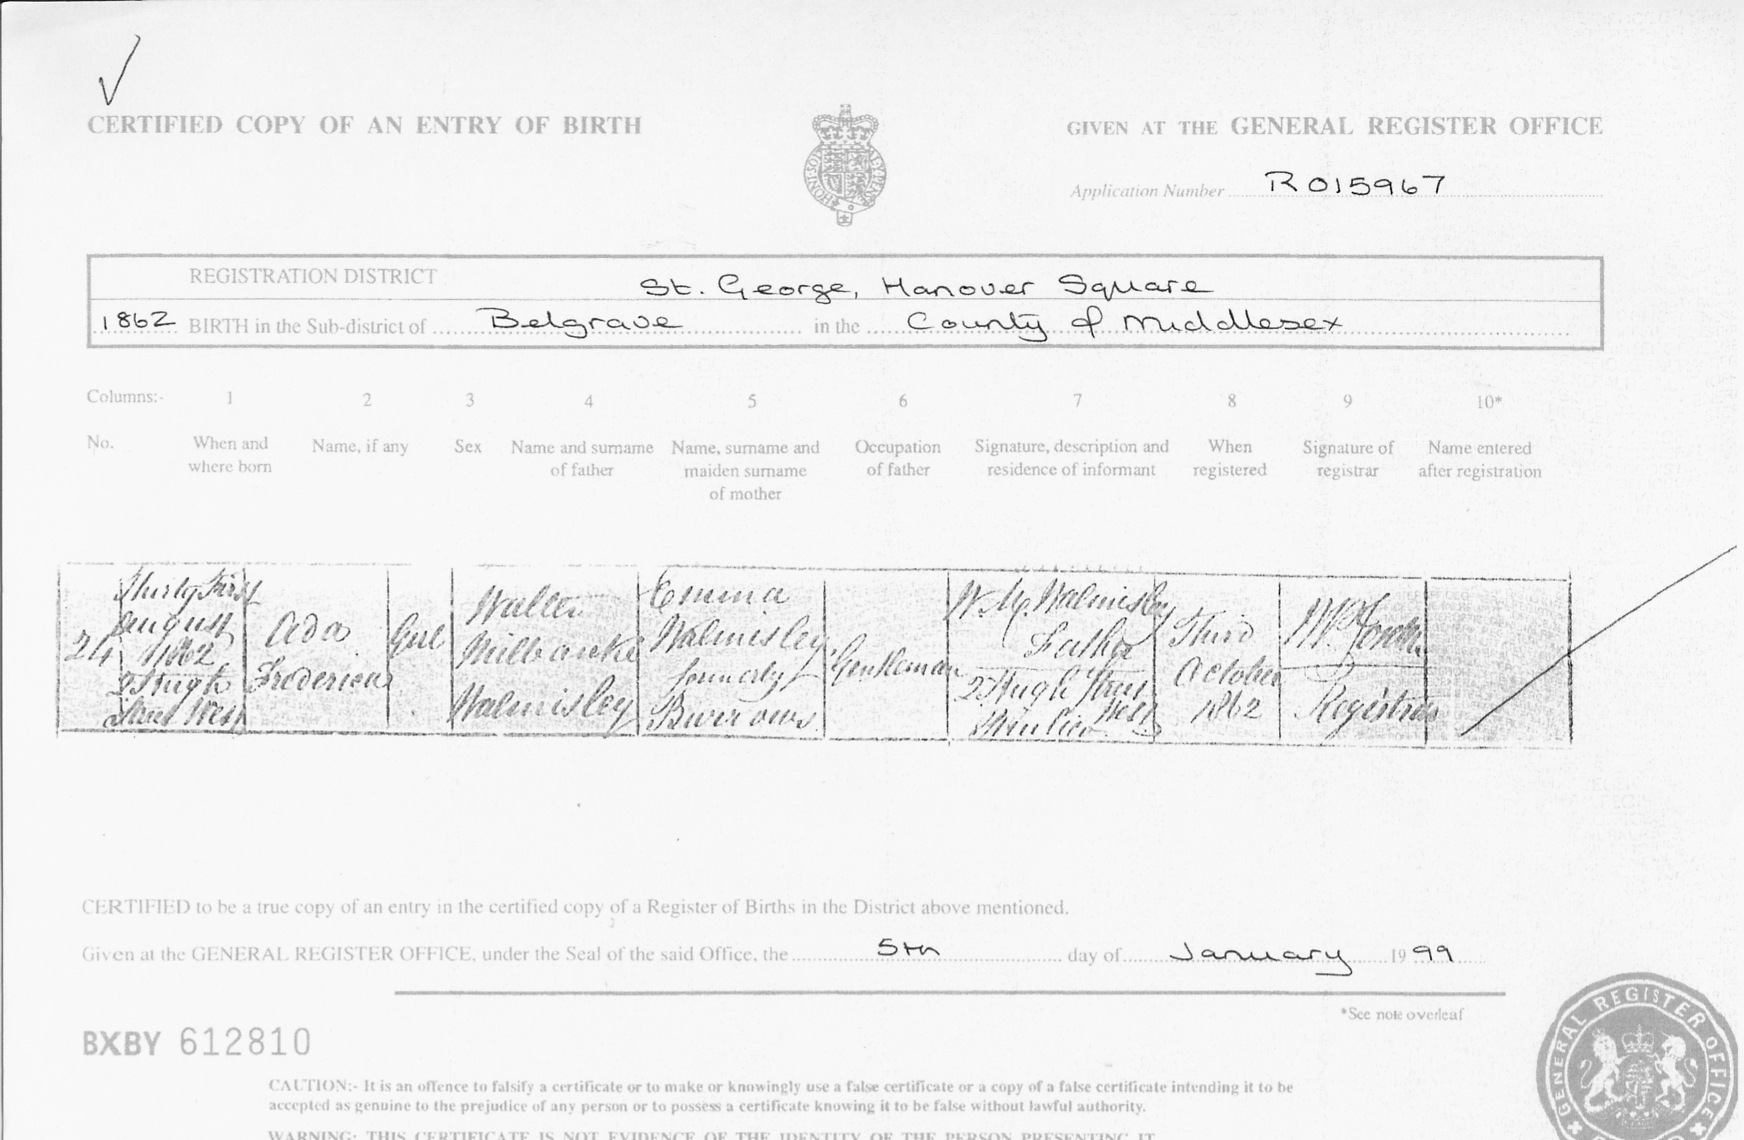 CERTIFIED COPY OF AN ENTRY OF BIRTH
GIVEN AT THE GENERAL REGISTER OFFICE
Application Number R015967
REGISTRATION DISTRICT St. George, Hanover Square
1862 BIRTH in the Sub-district of Belgrave in the County of Middlesex
Columns:- 1 2 3 4 5 6 7 8 9 10*
No. When and where born Name, if any Sex Name and surname of father Name, surname and maiden surname of mother Occupation of father Signature, description and residence of informant When registered Signature of registrar Name entered after registration
24
Thirty First
August
1862
2 Hugh
Street West
Ada
Frederica
Girl
Walter
Milbanke
Walmisley
Emma
Walmisley
formerly
Burrows
Gentleman
W. M. Walmisley
Father
2 Hugh Street
West
Pimlico
Third
October
1862
Registrar
CERTIFIED to be a true copy of an entry in the certified copy of a Register of Births in the District above mentioned.
Given at the GENERAL REGISTER OFFICE, under the Seal of the said Office, the 5th day of January 1999
*See note overleaf
BXBY 612810
GENERAL REGISTER OFFICE
CAUTION:- It is an offence to falsify a certificate or to make or knowingly use a false certificate or a copy of a false certificate intending it to be
accepted as genuine to the prejudice of any person or to possess a certificate knowing it to be false without lawful authority.
WARNING: THIS CERTIFICATE IS NOT EVIDENCE OF THE IDENTITY OF THE PERSON PRESENTING IT.